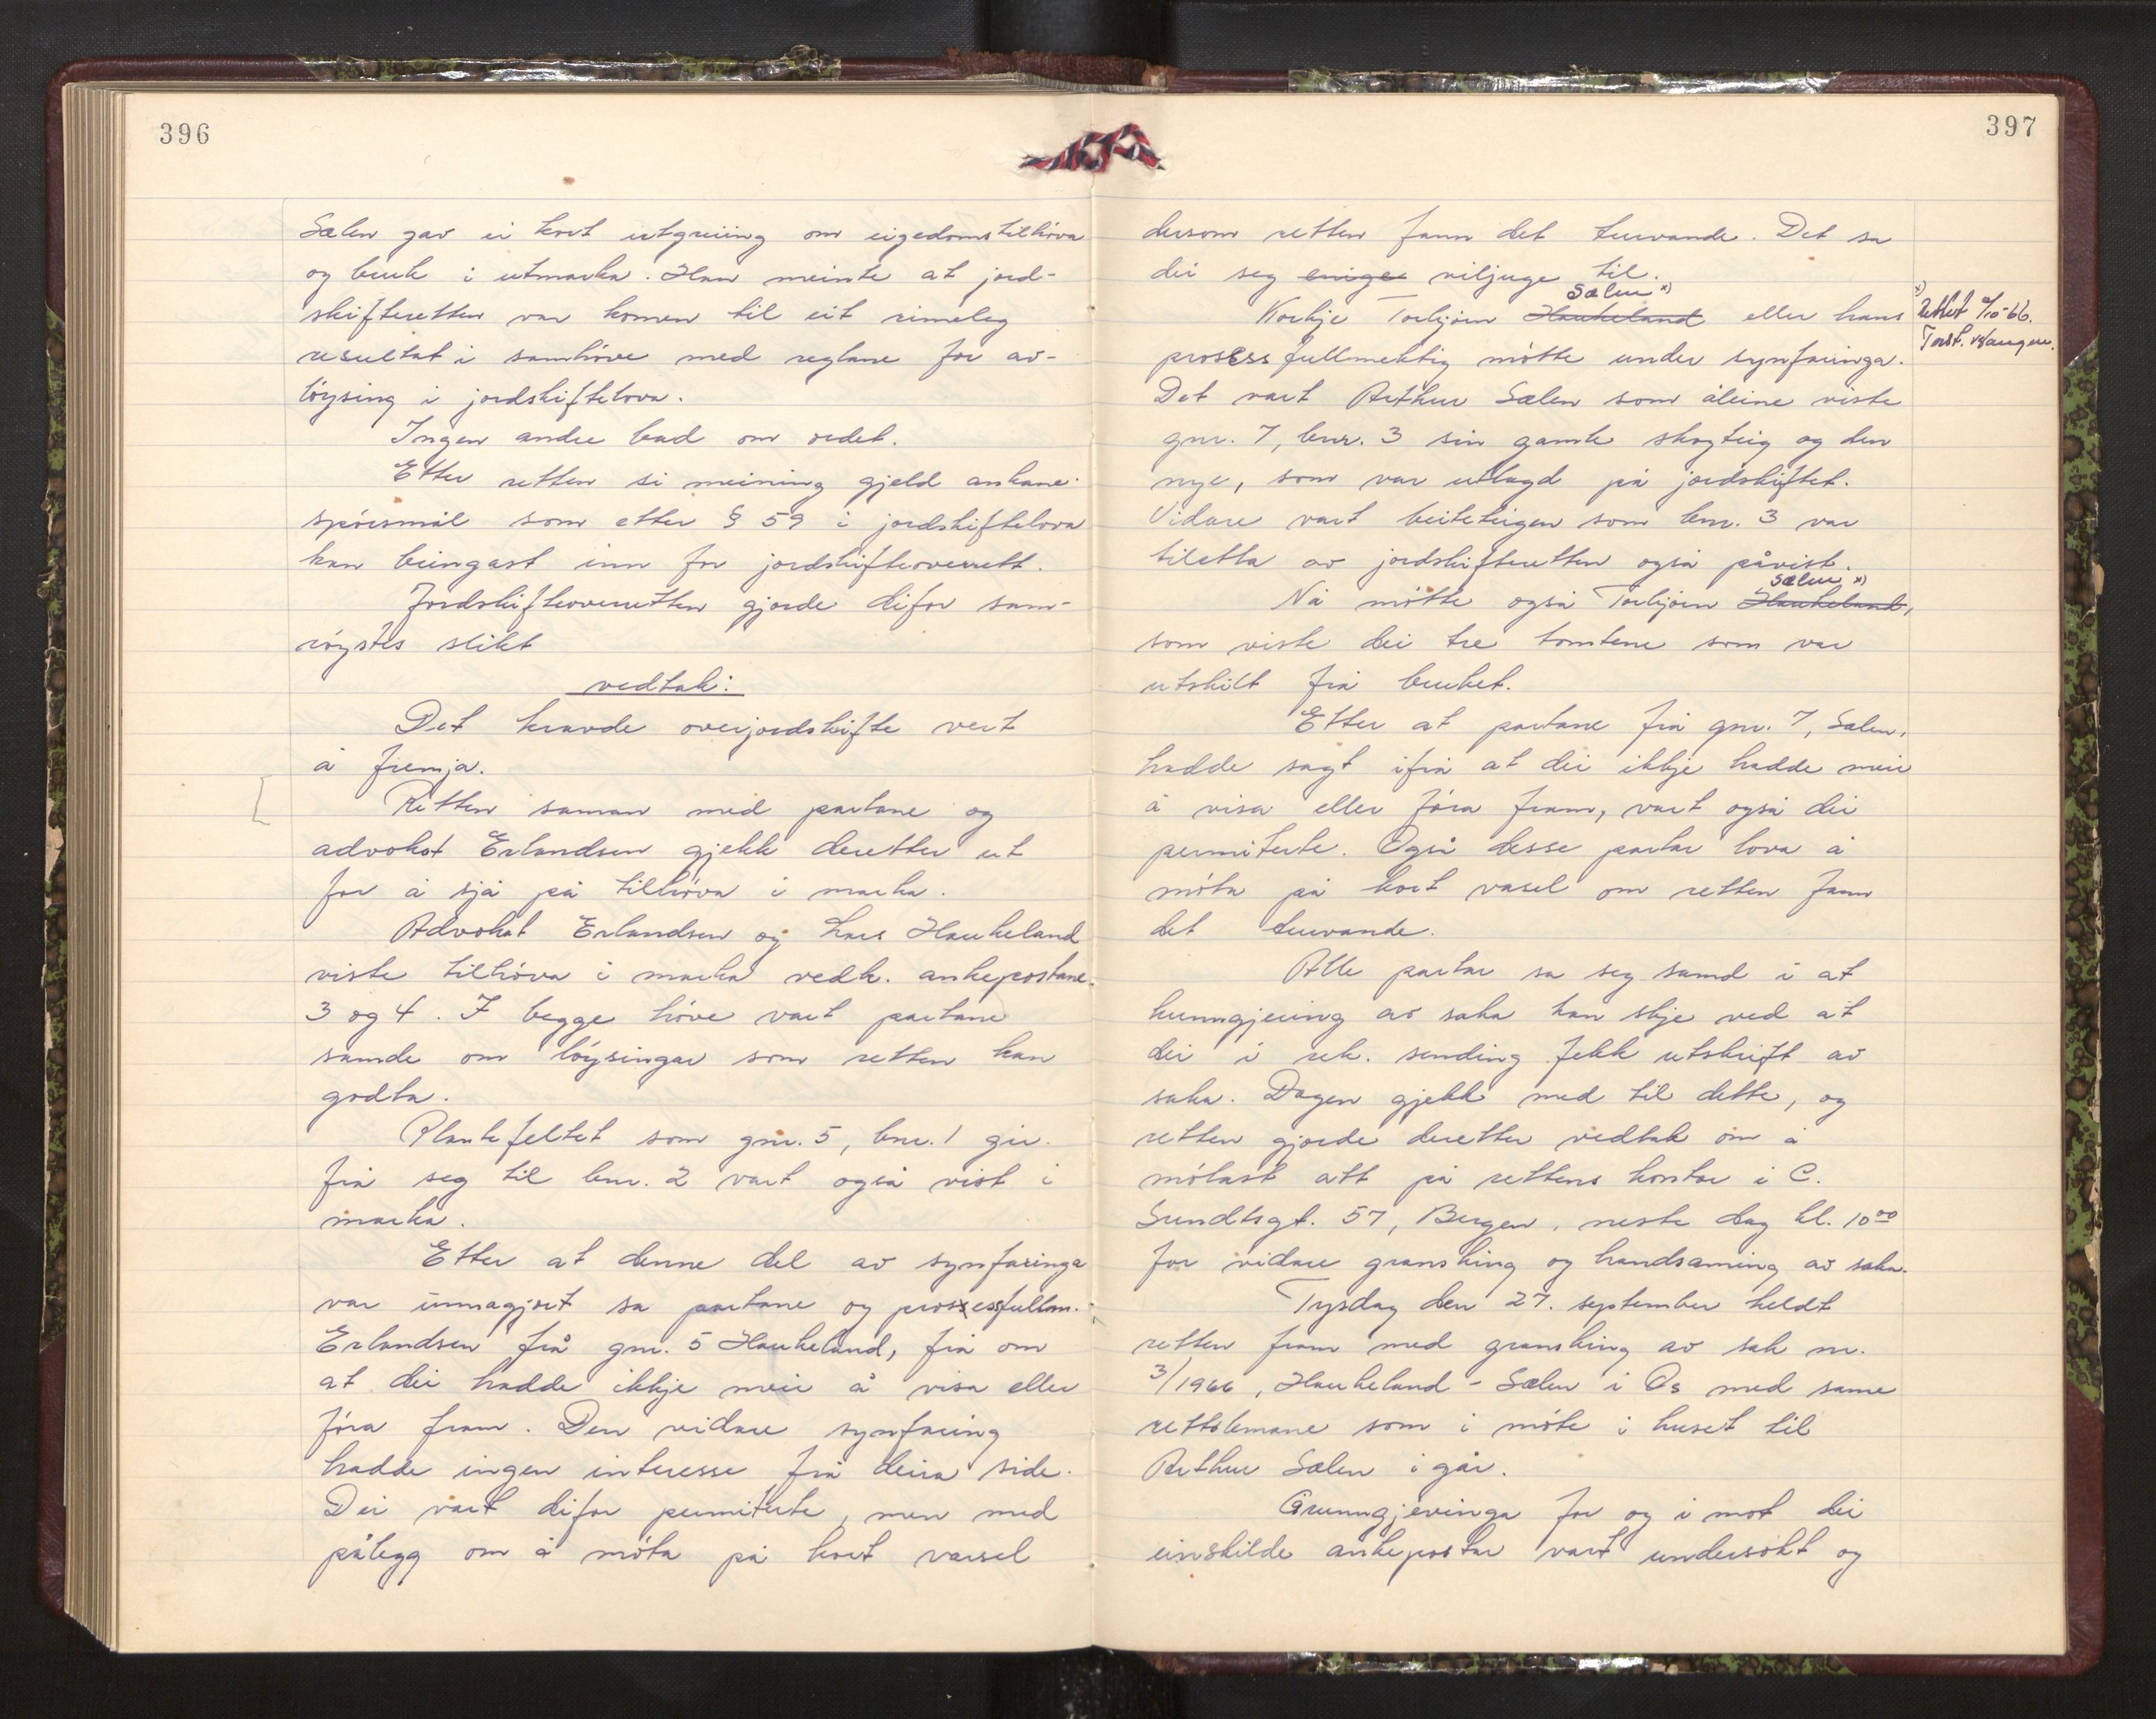 396
Sælen gav ei kort utgreiing om eigedomstilhöva
og bruk i utmarka. Han meinte at jord-
skifteretten var komen til eit rimeleg
resultat i samhöve med reglane for av-
löysing i jordskiftelova.
Ingen andre bad om ordet.
Etter retten si meining gjeld ankane
spörsmål som etter § 59 i jordskiftelova
kan bringast inn for jordskifteoverrett.
Jordskifteoverretten gjorde difor sam-
röystes slikt
vedtak:
Det kravde overjordskifte vert
å fremja.
Retten saman med partane og
advokat Erlandsen gjekk deretter ut
for å sjå på tilhöva i marka.
Advokat Erlandsen og Lars Haukeland
viste tilhöva i marka vedk. ankepostane
3 og 4. I begge höve vart partane
samde om löysingar som retten kan
godta.
Plantefeltet som gnr. 5, bnr. 1 gir
frå seg til bnr. 2 vart også vist i
marka.
Etter at denne del av synfaringa
var unnagjort sa partane og prosessfullm.
Erlandsen frå gnr. 5 Haukeland, frå om
at dei hadde ikkje meir å visa eller
föra fram. Den vidare synfaring
hadde ingen interesse frå deira side.
Dei vart difor permiterte, men med
pålegg om å möta på kort varsel
397
dersom retten fann det turvande. Det sa
dei seg enige viljuge til.
Sælen x)
Korkje Torbjörn Haukeland eller hans
prosessfullmektig mötte under synfaringa.
x) Rettet /10-66.
Torst.
Det vart Arthur Sælen som åleine viste
gnr. 7, bnr. 3 sin gamle skogteig og den
nye, som var utlagd på jordskiftet.
Vidare vart beiteteigen som bnr. 3 var
tiletta av jordskifteretten også påvist.
Sælen x)
Nå mötte også Torbjörn Haukeland,
som viste dei tre tomtene som var
utskilt frå bruket.
Etter at partane frå gnr. 7, Sælen,
hadde sagt ifrå at dei ikkje hadde meir
å visa eller föra fram, vart også dei
permiterte. Også desse partar lova å
möta på kort varsel om retten fann
det turvande.
Alle partar sa seg samd i at
kunngjering av saka kan skje ved at
dei i rek. sending fekk utskrift av
saka. Dagen gjekk med til dette, og
retten gjorde deretter vedtak om å
mötast att på rettens kontor i C.
Sundtsgt. 57, Bergen, neste dag kl. 10⁰⁰
for vidare gransking og handsaming av saka.
Tysdag den 27. september heldt
retten fram med gransking av sak nr.
3/1966, Haukeland - Sælen i Os med same
rettslemane som i möte i huset til
Arthur Sælen i går.
Grunngjevinga for og i mot dei
einskilde ankepostar vart undersökt og